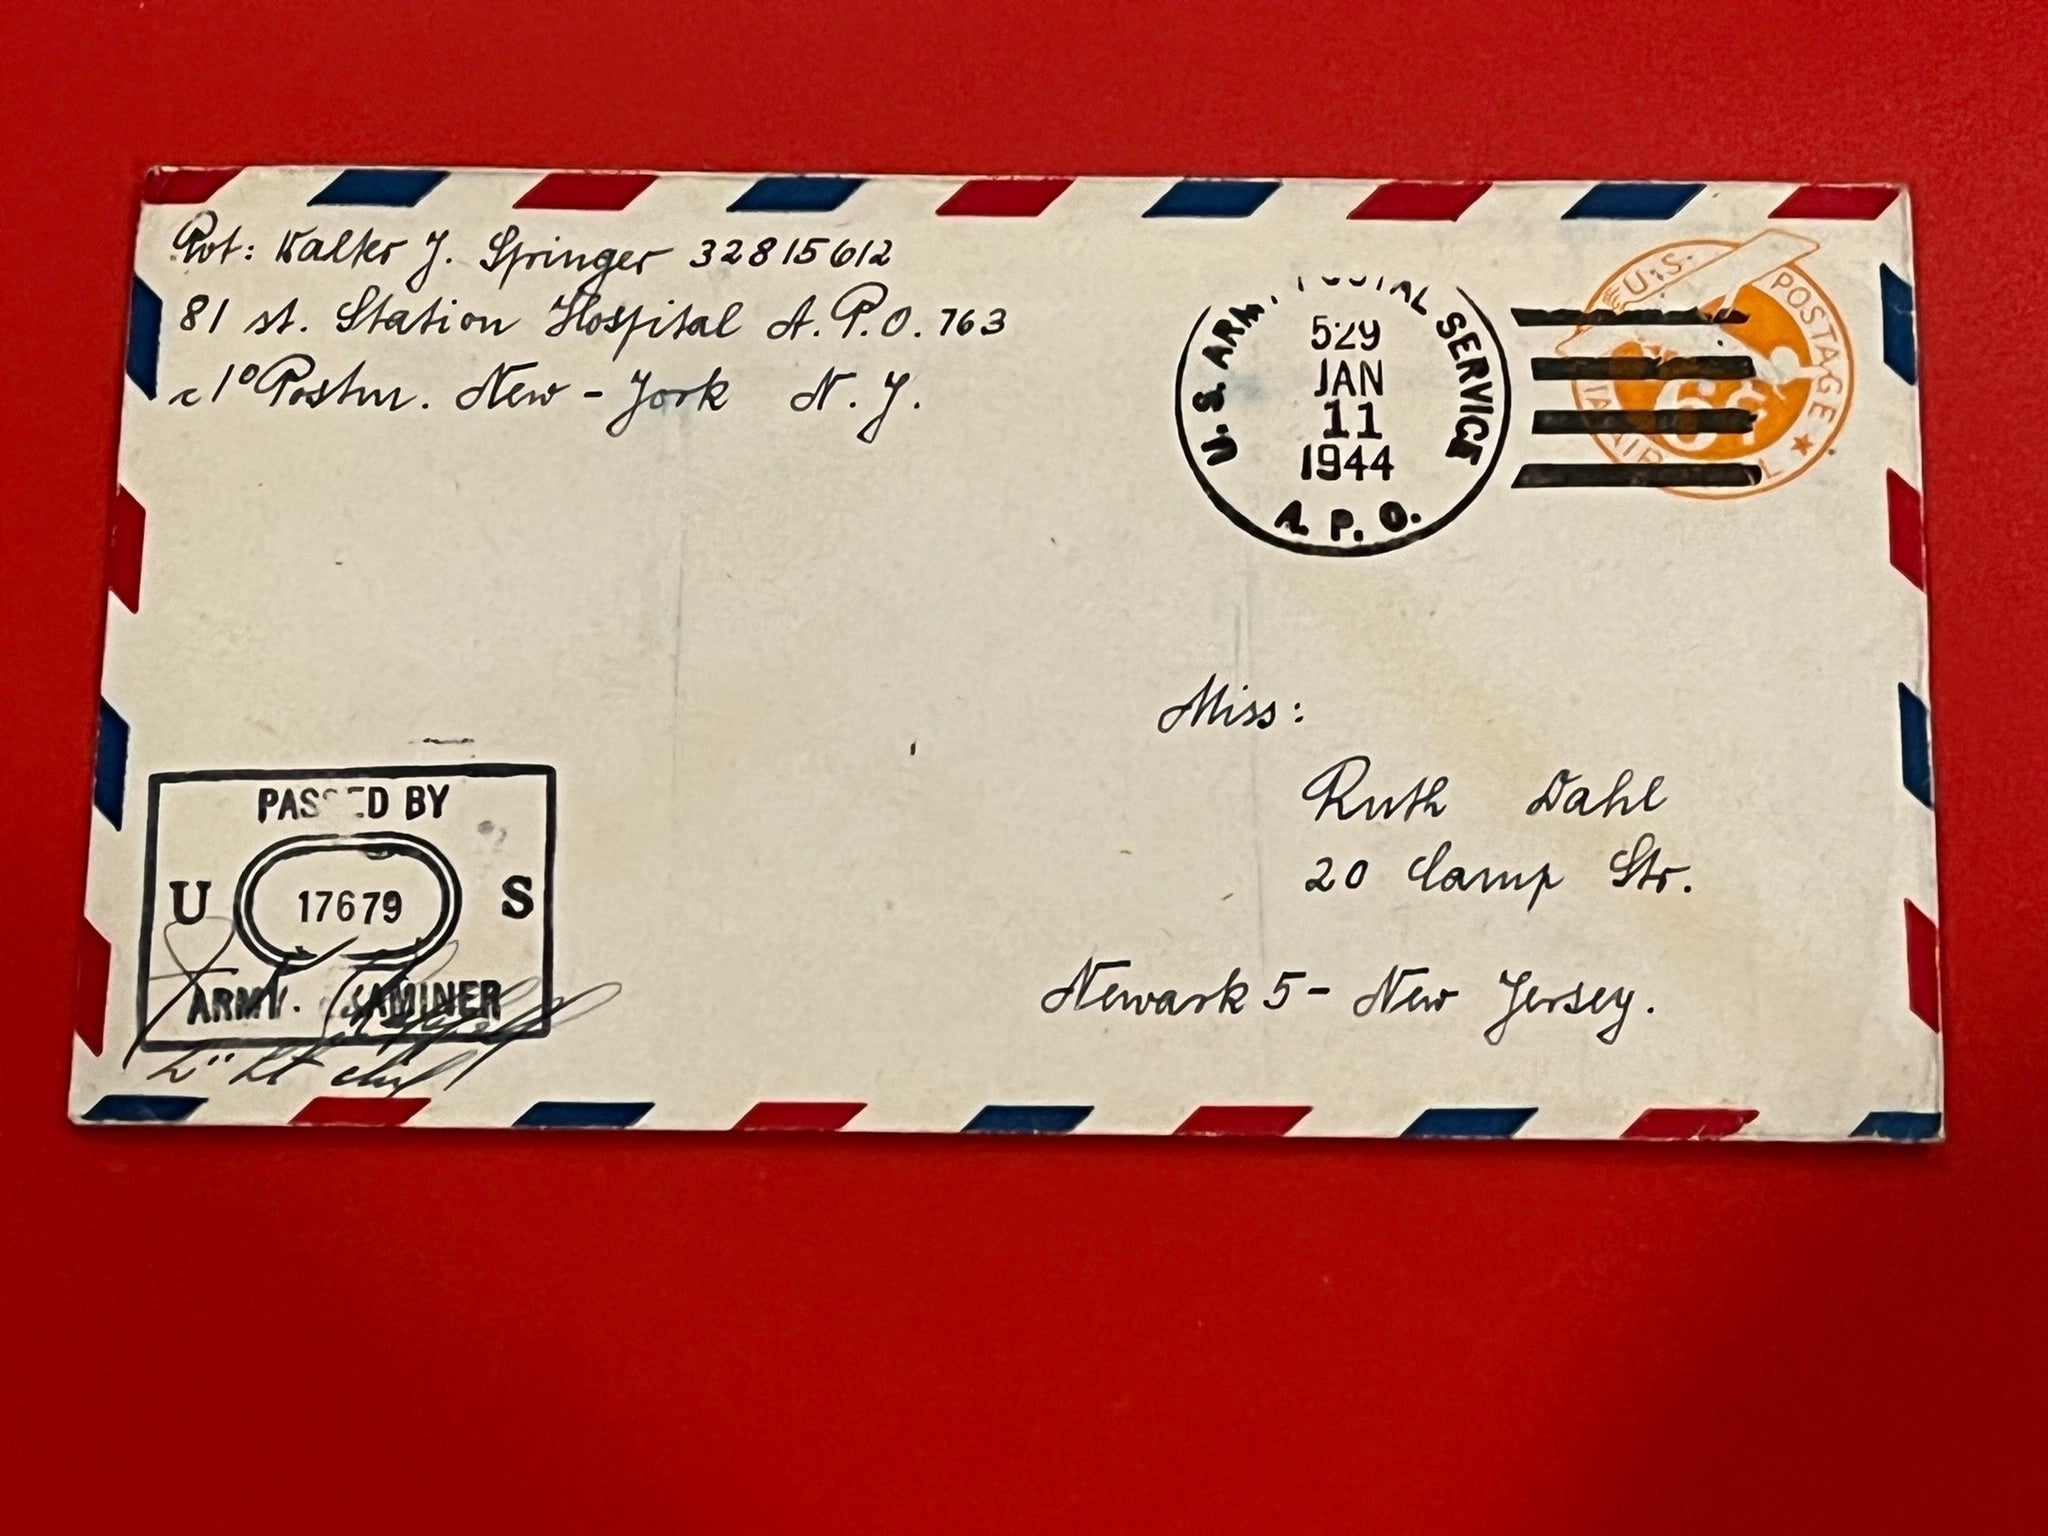 Pvt: Walter J. Springer 32815612
81 st. Station Hospital A.P.O. 763
c/o Postm. New-York N.Y.
U.S. ARMY POSTAL SERVICE
529
JAN
11
1944
A.P.O.
U.S. POSTAGE
6¢
AIR MAIL
Miss:
Ruth Dahl
20 Camp Str.
Newark 5- New Jersey.
PASSED BY
U 17679 S
ARMY EXAMINER